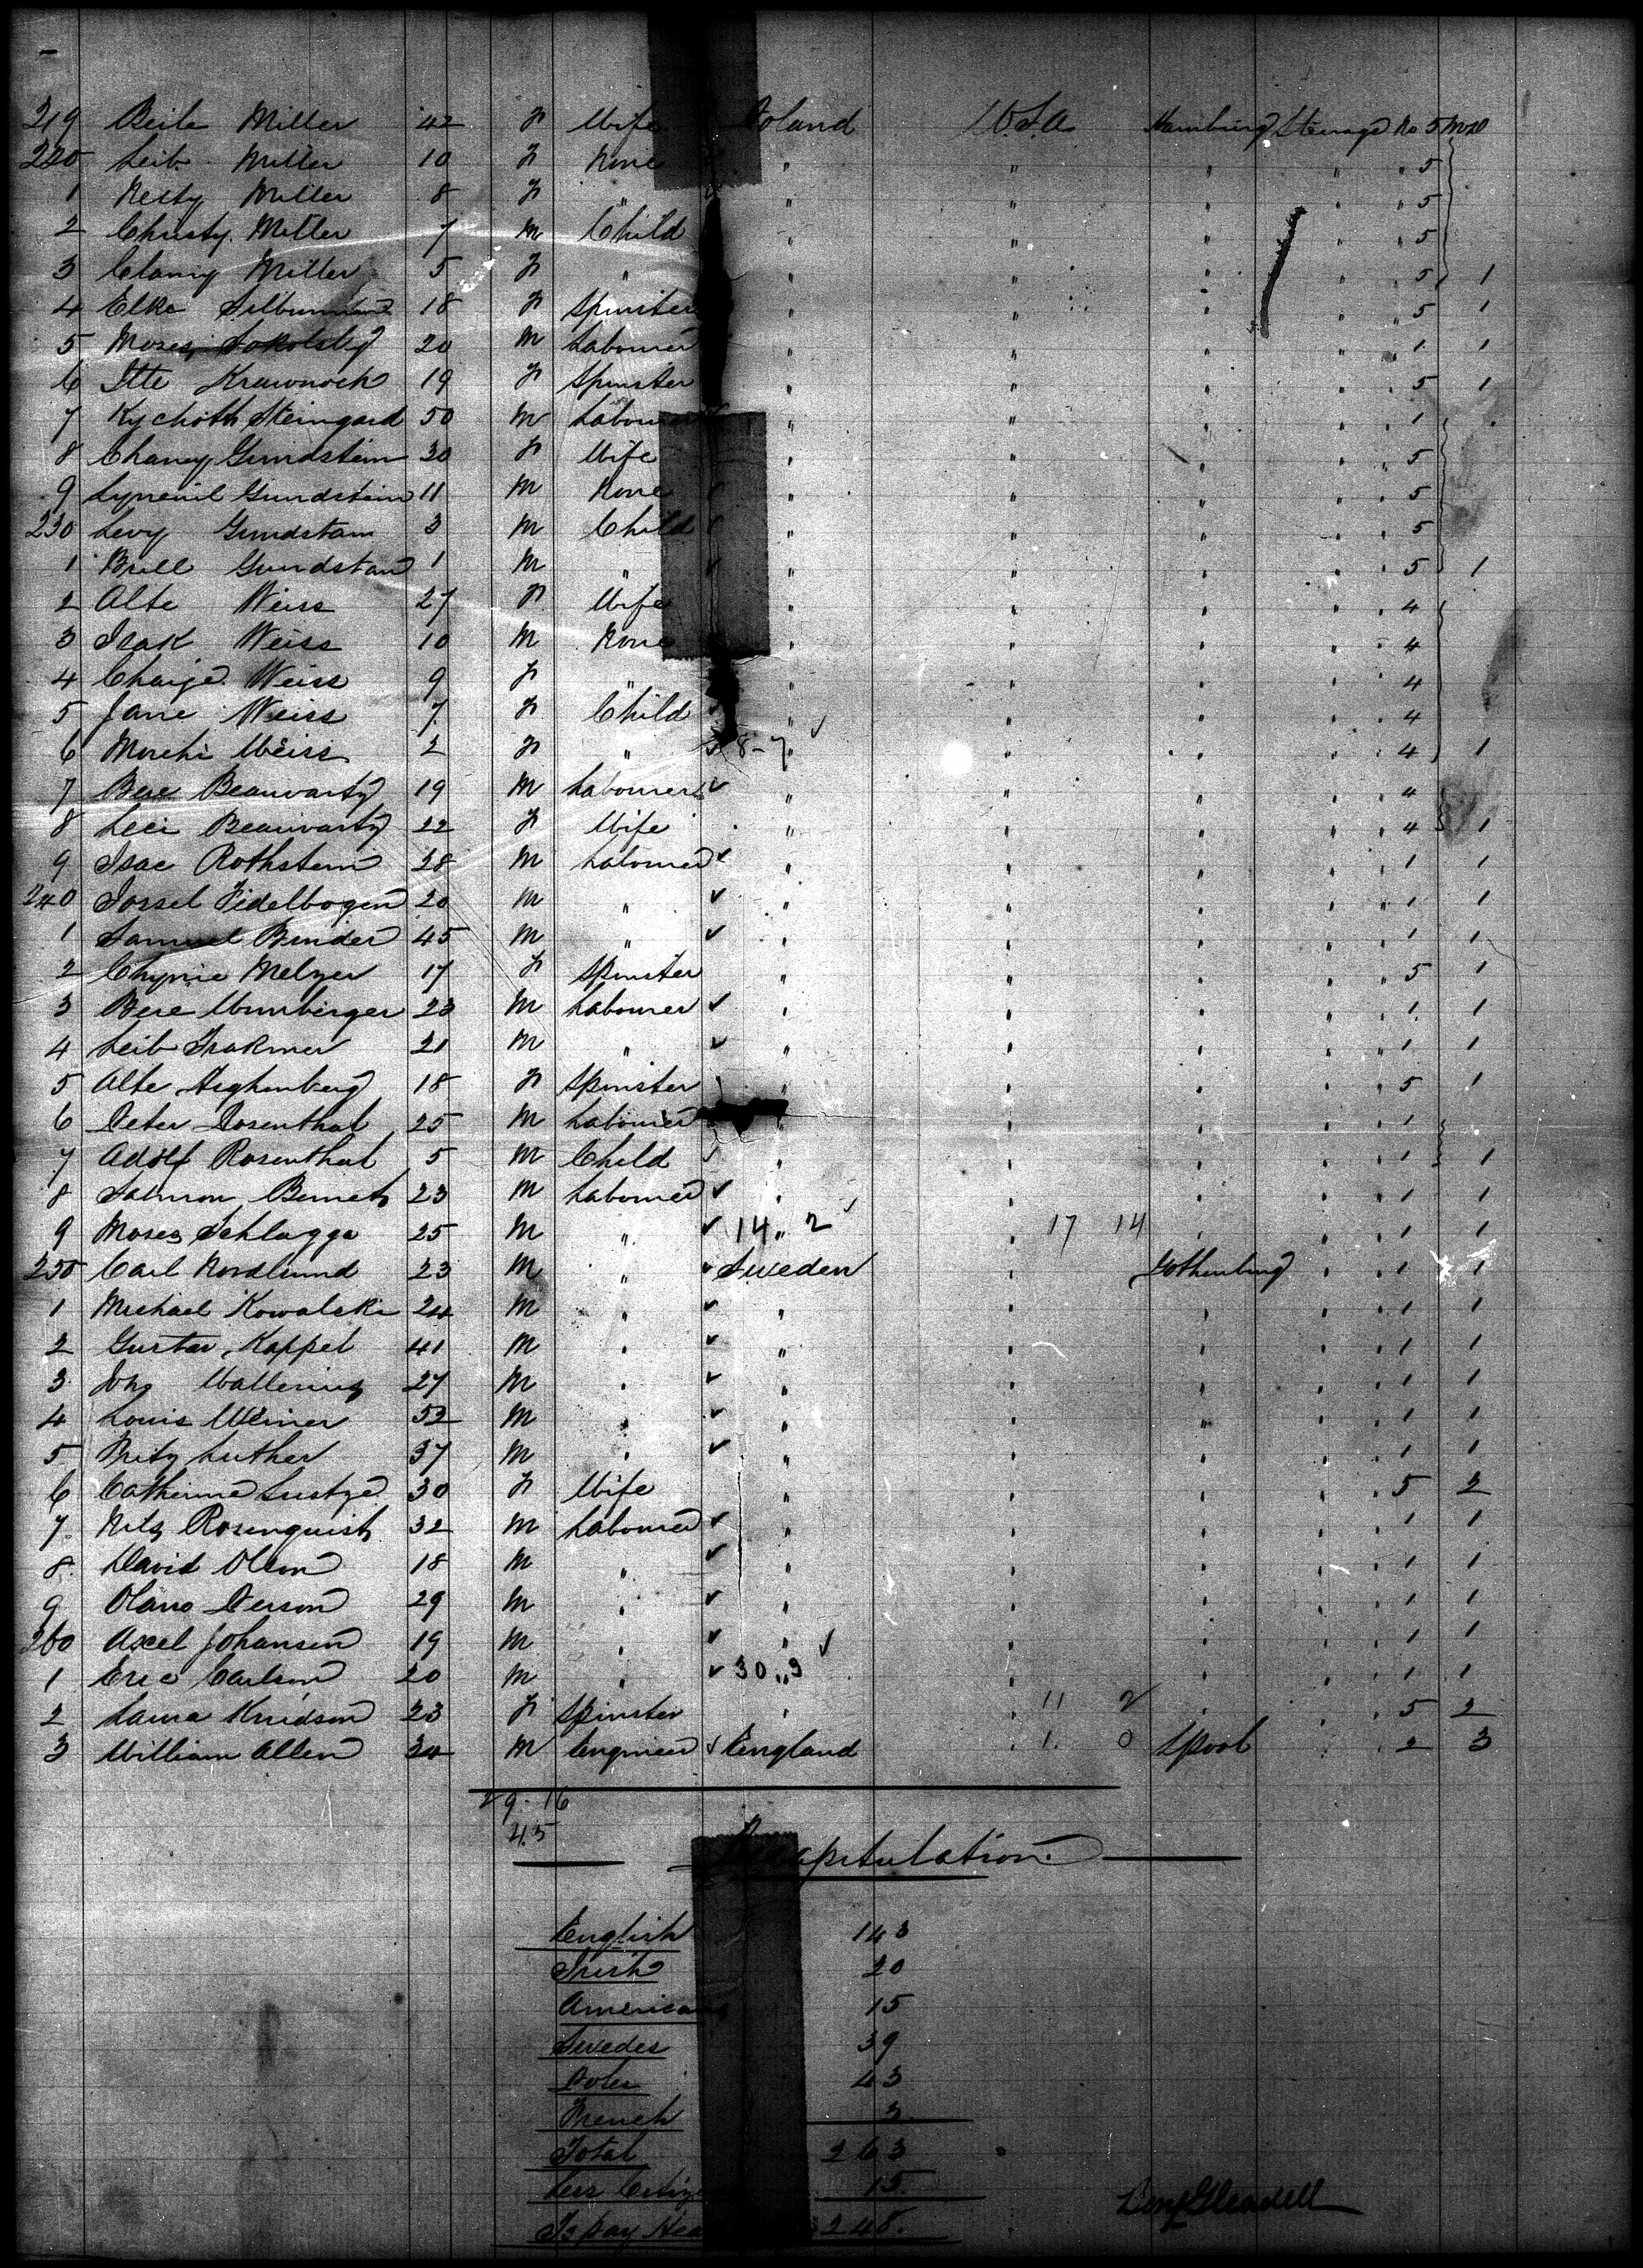 219 Beile Miller 42 F Wife Poland U.S.A. Hamburg Steerage No 5
220 Leib Miller 10 F None " " " " " 5
1 Netty Miller 8 F " " " " " " 5
2 Christy Miller 7 M Child " " " " " 5
3 Miller 5 F " " " " " " 5 1
4 Elke 18 F Spinster " " " " " 5 1
5 Moses Sokolsky 20 M Labourer " " " " " 1 1
6 Itte 19 F Spinster " " " " " 5 1
7 Steingard 50 M Labourer " " " " " 1
8 Chaney Gundstein 30 F Wife " " " " " 5
9 Gundstein 11 M None " " " " " 5
230 Levy Gundstam 3 M Child " " " " " 5
1 Brill Gundstam 1 M " " " " " " 5 1
2 Alte Weiss 27 F Wife " " " " " 4
3 Isak Weiss 10 M None " " " " " 4
4 Chaije Weiss 9 F " " " " " " 4
5 Jane Weiss 7 F Child " " " " " 4
6 Weiss 2 F " 8-7 " " " " " 4 1
7 Beauvarty 19 M Labourer " " " " " 4
8 Beauvarty 22 F Wife " " " " " 4 1
9 Isac Rothstein 28 M Labourer " " " " " 1 1
240 Jossel Fidelbogen 20 M " " " " " " 1 1
1 Samuel Binder 45 M " " " " " " 1 1
2 Melzer 17 F Spinster " " " " " 5 1
3 23 M Labourer " " " " " 1 1
4 Leib 21 M " " " " " " 1 1
5 Alte 18 F Spinster " " " " " 5 1
6 Peter Rosenthal 25 M Labourer " " " " " 1
7 Adolf Rosenthal 5 M Child " " " " " 1 1
8 Salmon 23 M Labourer " " " " " 1 1
9 Moses Schlagge 25 M " 14 " 2 " 17 14 " " " 1 1
250 Carl Nordlund 23 M " Sweden " Gothenburg " " 1 1
1 Michael Kowalski 24 M " " " " " " 1 1
2 Gustav Kappel 41 M " " " " " " 1 1
3 Wallenius 27 M " " " " " " 1 1
4 Louis Weiner 52 M " " " " " " 1 1
5 Fritz Luther 37 M " " " " " " 1 1
6 Catherine 30 F Wife " " " " " 5 2
7 Nils Rosenquist 32 M Labourer " " " " " 1 1
8 David Olson 18 M " " " " " " 1 1
9 Person 29 M " " " " " " 1 1
260 Axel Johansen 19 M " " " " " " 1 1
1 Eric Carlson 20 M " 30 " 9 " " " " 1 1
2 Laura Knudson 23 F Spinster " " 11 2 " " " 5 2
3 William Allen 34 M Engineer England " 1 0 Lpool " " 2 3
29-16
45
Recapitulation
English 143
Irish 20
Americans 15
Swedes 39
Poles 43
French 3
Total 263
Less 15
To pay 248